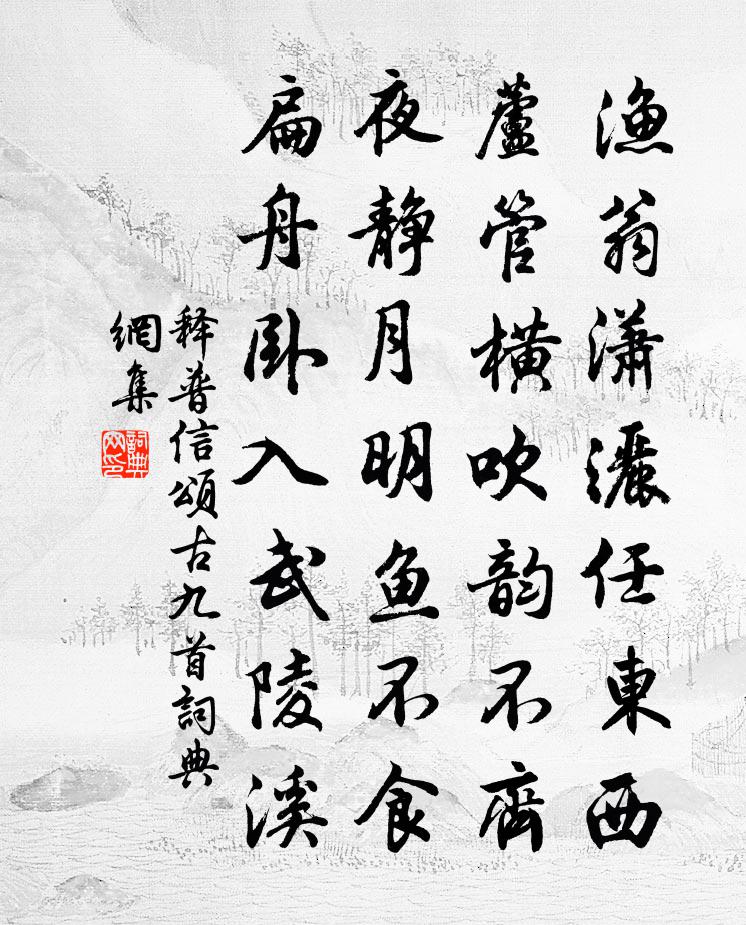 渔翁瀟灑任東西
蘆管橫吹韵不齊
夜静月明鱼不食
扁舟卧入武陵溪
释普信頌古九首詞典
網集
詞典
网印